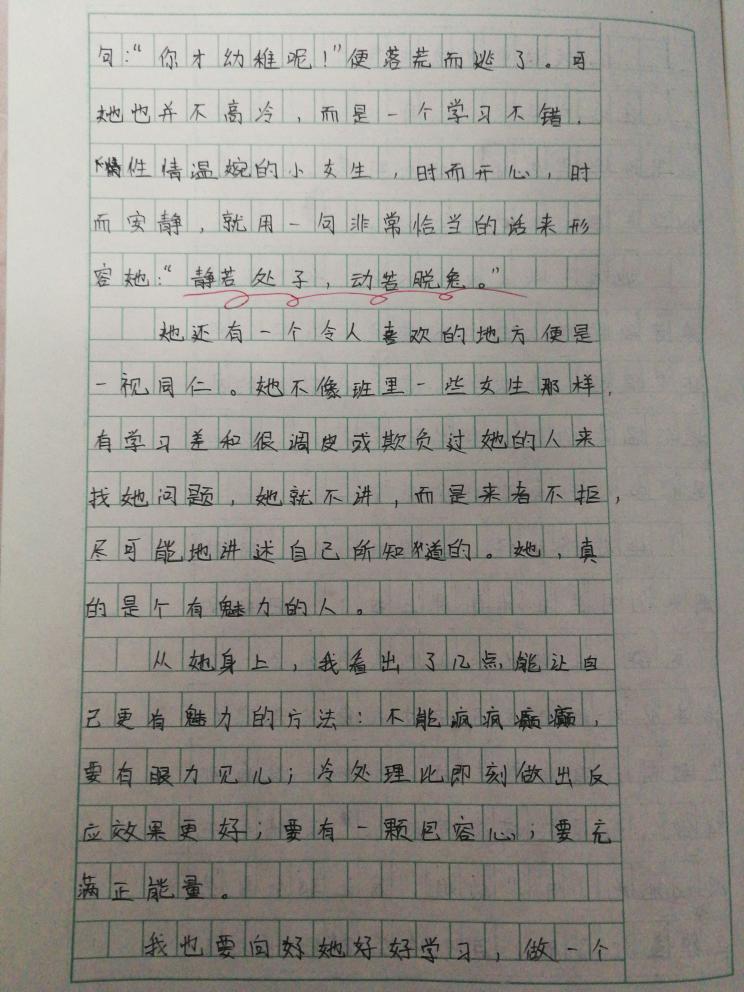 句：“你才幼稚呢！”便落荒而逃了。可
她也并不高冷，而是一个学习不错，
性情温婉的小女生，时而开心，时
而安静，就用一句非常恰当的话来形
容她：“静若处子，动若脱兔。”
她还有一个令人喜欢的地方便是
一视同仁。她不像班里一些女生那样，
有学习差和很调皮或欺负过她的人来
找她问题，她就不讲，而是来者不拒，
尽可能地讲述自己所知道的。她，真
的是个有魅力的人。
从她身上，我看出了几点能让自
己更有魅力的方法：不能疯疯癫癫，
要有眼力见儿；冷处理比即刻做出反
应效果更好；要有一颗包容心；要充
满正能量。
我也要向好她好好学习，做一个